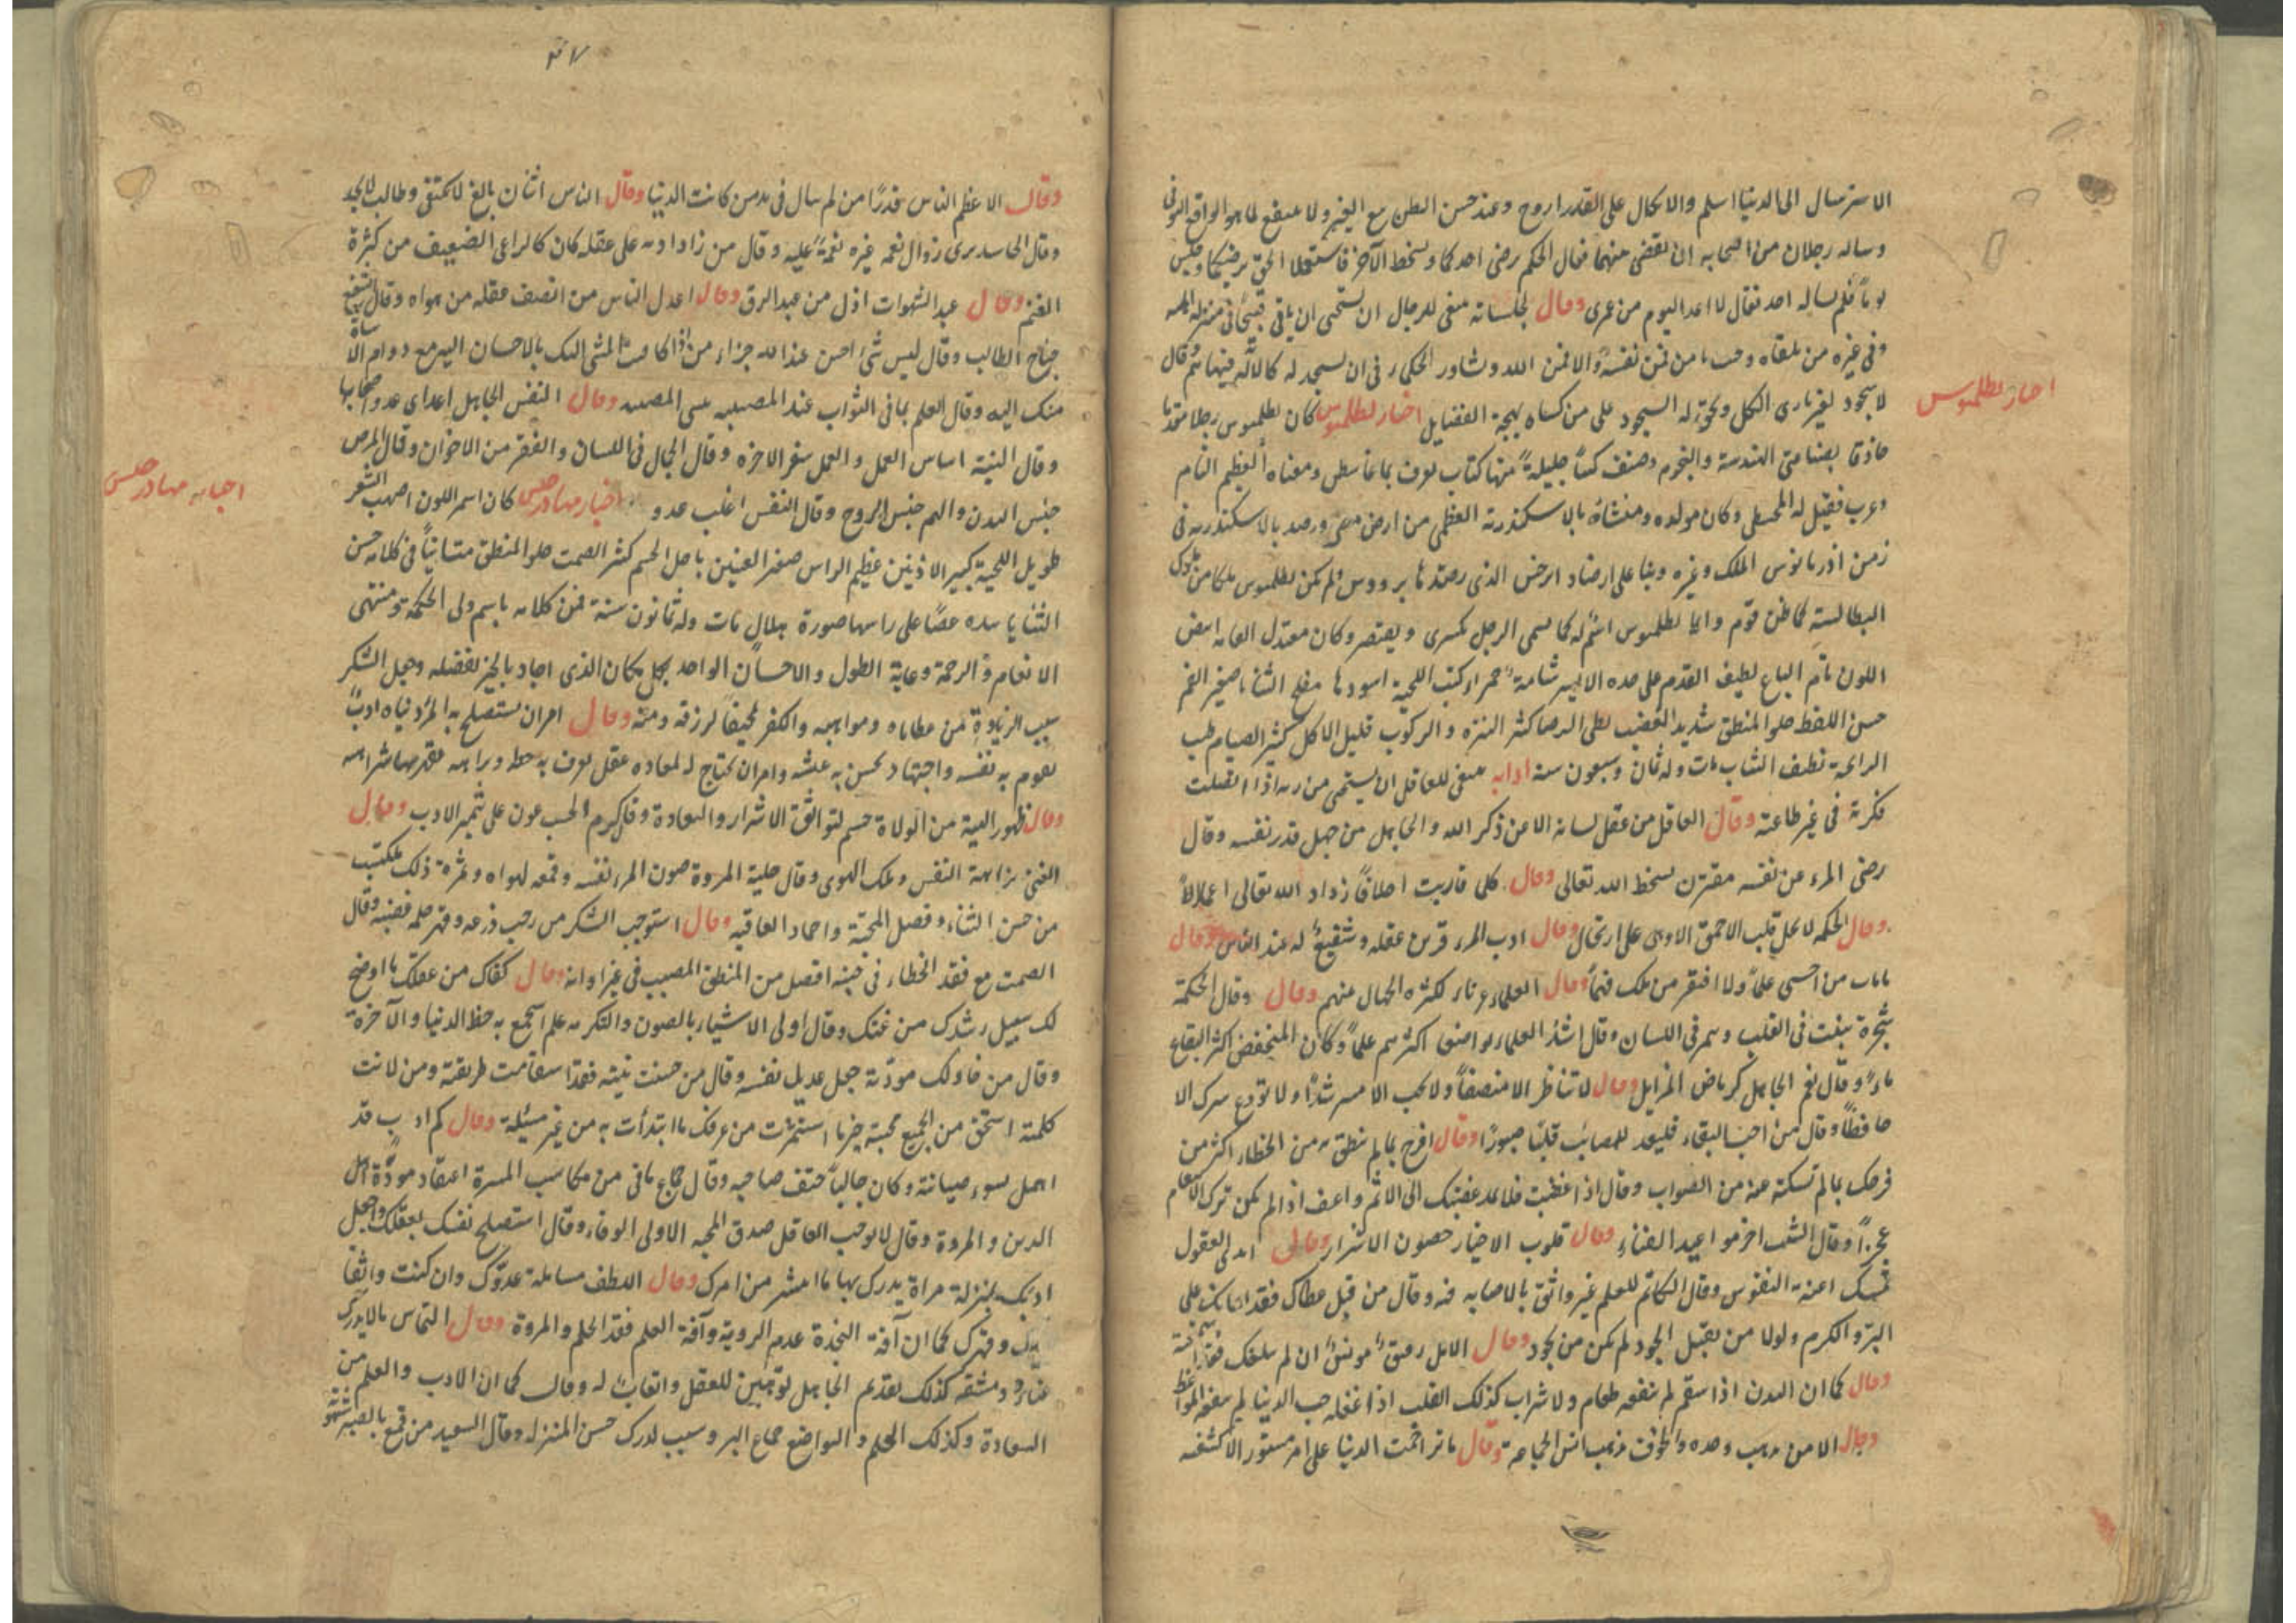 الاسترسال الى الدنيا اسلم والاتكال على القدر اروح وعند حسن الظن مع الغير ولا
وساله رجلان من اصحابه ان يقضى منهما فقال الحكم يرضى احدكما ويسخط الآخر فاستعملا الحق يرضيكما وجلس
يوماً فلم يساله احد فقال لا اعد اليوم من عمرى وقال لجلسائه ينبغى للرجال ان يستحيى ان ياتى قبيحاً فى منزله
وفى غيره من يلقاه
لا سجود لغير بارى الكل السجود على من كساه بهجة الفضايل اخبار بطلميوس كان بطلميوس رجلا
اخبار بطلميوس
حاذقا بصناعتى الهندسة والنجوم وصنف كتباً جليلةً منها كتاب يعرف ومعناه العظيم التام
وعرب فقيل له المجسطى وكان مولده ومنشاؤه بالاسكندرية العظمى من ارض مصر ورصد بالاسكندرية فى
زمن اذريانوس الملك وغيره وبنا على ارصاد ابرخس الذى رصدها برودس ولم يكن بطلميوس ملكا من ملوك
البطالسة كما ظن قوم وانما بطلميوس اسم له كما يسمى الرجل كسرى وقيصر وكان معتدل القامة ابيض
اللون تام الباع لطيف القدم على خده الايسر شامة حمراء كث اللحية اسودها مفلج الثنايا صغير الفم
حسن اللفظ حلو المنطق شديد الغضب بطى الرضا كثير النزه والركوب قليل الاكل كثير الصيام طيب
الرائحة نظيف الثياب مات وله ثمان وسبعون سنة ادابه ينبغى للعاقل ان يستحيى من ربه اذا اتصلت
فكرته فى غير طاعته وقال العاقل من عقل لسانه الا عن ذكر الله والجاهل من جهل قدر نفسه وقال
رضى المرء عن نفسه مقترن بسخط الله تعالى وقال كلما قاربت اجلاً فازداد الله تعالى اعمالاً
وقال الحكمة لا تحل قلب الاحمق الا وهى على ارتحال وقال ادب المرء قرين عقله وشفيع له عند الناس وقال
مامات من احيى علماً ولا افتقر من ملك فهماً وقال العلماء غرباء لكثرة الجهال منهم وقال وقال الحكمة
شجرة تنبت فى القلب وتثمر فى اللسان وقال اشد العلماء تواضعاً اكثرهم علماً وكان المنخفض اكثر البقاع
ماءً وقال نعم الجاهل كرياض المزابل وقال لا تناظر الا منصفاً ولا تجب الا مسترشداً ولا تودع سرك الا
حافظاً وقال من احب البقاء فليعد للمصائب قلباً صبوراً وقال افرح بما لم تنطق به من الخطاء اكثر من
فرحك بما لم تسكت عنه من الصواب وقال اذا غضبت فلا تعد غضبك الى الاثم واعف اذا لم يكن ترك الانتقام
عجزاً وقال الشيب اخر مواعيد الفناء وقال قلوب الاخيار حصون الاسرار وقال العقول
تمسك اعنة النفوس وقال الكاتم للعلم غير واثق بالاصابه فيه وقال من قبل عطاك فقد اعانك على
البر والكرم ولولا من يقبل الجود لم يكن من يجود وقال الامل رفيق مونس ان لم يبلغك فقد
وقال كما ان البدن اذا سقم لم ينفعه طعام ولا شراب كذلك القلب اذا غفله حب الدنيا لم تنفعه المواعظ
وقال الامن يذهب وحده والخوف يذهب انس الجماعة وقال ما تراخمت الدنيا على امر مستور الا كشفه
وقال الا عظم الناس قدراً من لم يبال فى يد من كانت الدنيا وقال الناس اثنان بالغ لا يكتفى وطالب لا يجد
وقال الحاسد يرى زوال نعمه غيره نعمةً عليه وقال من زاد ادبه على عقله كان كالراعى الضعيف من كثرة
الغنم وقال عبد الشهوات اذل من عبد الرق وقال اعدل الناس من انصف عقله من هواه وقال الشفيع
جناح الطالب وقال ليس شئ احسن عند الله جزاء من بالاحسان اليه مع دوام الاساءة
منك اليه وقال العلم بما فى الثواب عند المصيبه ينسى المصيبه وقال النفس الجاهل اعداى عدو اصحابها
وقال النية اساس العمل والعمل سفر الاخرة وقال الجمال فى اللسان والفقر من الاخوان وقال المرض
حبس البدن والهم حبس الروح وقال النفس اغلب عدو اخبار مهادرجيس كان اسمر اللون اصهب الشعر
اخبار مهادرجيس
طويل اللحية كبير الاذنين عظيم الراس صغير العينين ناحل الجسم كثير الصمت حلو المنطق متانياً فى كلامه حسن
الثنايا بيده عصاً على راسها صورة هلال مات وله ثمانون سنة فمن كلامه باسم ولى الحكمة ومنتهى
الانعام والرحمة وغاية الطول والاحسان الواحد بكل مكان الذى اجاد بالخير بفضله وجعل الشكر
سبب الزيادة من عطاياه ومواهبه والكفر لرزقه ومنه وقال امران يستصلح به المرء دنياه ادبٌ
يقوم به نفسه واجتهاد يحسن به عيشه وامران يحتاج لمعاده عقل يعرف به
وقال ظهور الهيبة من الولاة حسم لتواثق الاشرار والسعادة وقال كرم الحسب عون على ثمر الادب وقال
الغنى نزاهة النفس وملك الهوى وقال حلية المروة صون المرء نفسه وقمعه لهواه وثمرة ذلك مكتسب
من حسن الثناء وفضل المحبة واحماد العاقبه وقال استوجب الشكر من رحب ذرعه وقهر حلمه غضبه وقال
الصمت مع فقد الخطاء فى حينه افضل من المنطق المصيب فى غير اوانه وقال كفاك من عقلك ما اوضح
لك سبيل رشدك من غيك وقال اولى الاشياء بالصون والتكرمه علم اجمع به حظ الدنيا والآخرة
وقال من فاولك مودته جعل عديل نفسه وقال من حسنت نيته فقد استقامت طريقته ومن لانت
كلمته استحق من الجميع محبته خير ما استثمرت من عرفك ما ابتدأت به من غير مسئلة وقال كم ادب قد
اهمل بسوء صيانته وكان جالباً حتف صاحبه وقال جماع مافى من مكاسب المسرة اعتقاد مودة اهل
الدين والمروة وقال لا يوجب العاقل صدق المحبه الا ولى الوفاء وقال استصلح نفسك بعقلك واجعل
ادبك بمنزلة مراة يدرك بها ما انتشر من امرك وقال الطف مسايلة عدوك وان كنت واثقاً
بك وقهرك كما ان آفة النجدة عدم الروية وآفة العلم فقد الحلم والمروة وقال التماس مالا يدرك
عناء ومشقه كذلك تقديم الجاهل توهين للعقل واتعاب له وقال كما ان الادب والعلم من
السعادة وكذلك الحلم والتواضع جماع البر وسبب لدرك حسن المنزله وقال السعيد من قمع بالصبر شهوته